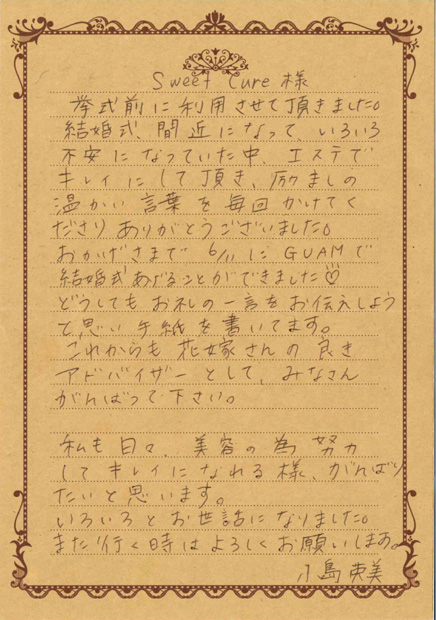 Sweet Cure 様
挙式前に利用させて頂きました。
結婚式 間近になって、いろいろ
不安になっていた中、エステで
キレイにして頂き、励ましの
温かい言葉を毎回かけてく
ださりありがとうございました。
おかげさまで 6/11にGUAMで
結婚式あげることができました♡
どうしてもお礼の一言をお伝えしよう
と思い手紙を書いてます。
これからも花嫁さんの良き
アドバイザーとして、みなさん
がんばって下さい。
私も日々、美容の為努力
してキレイになれる様、がんばり
たいと思います。
いろいろとお世話になりました。
また行く時はよろしくお願いします。
小島 美